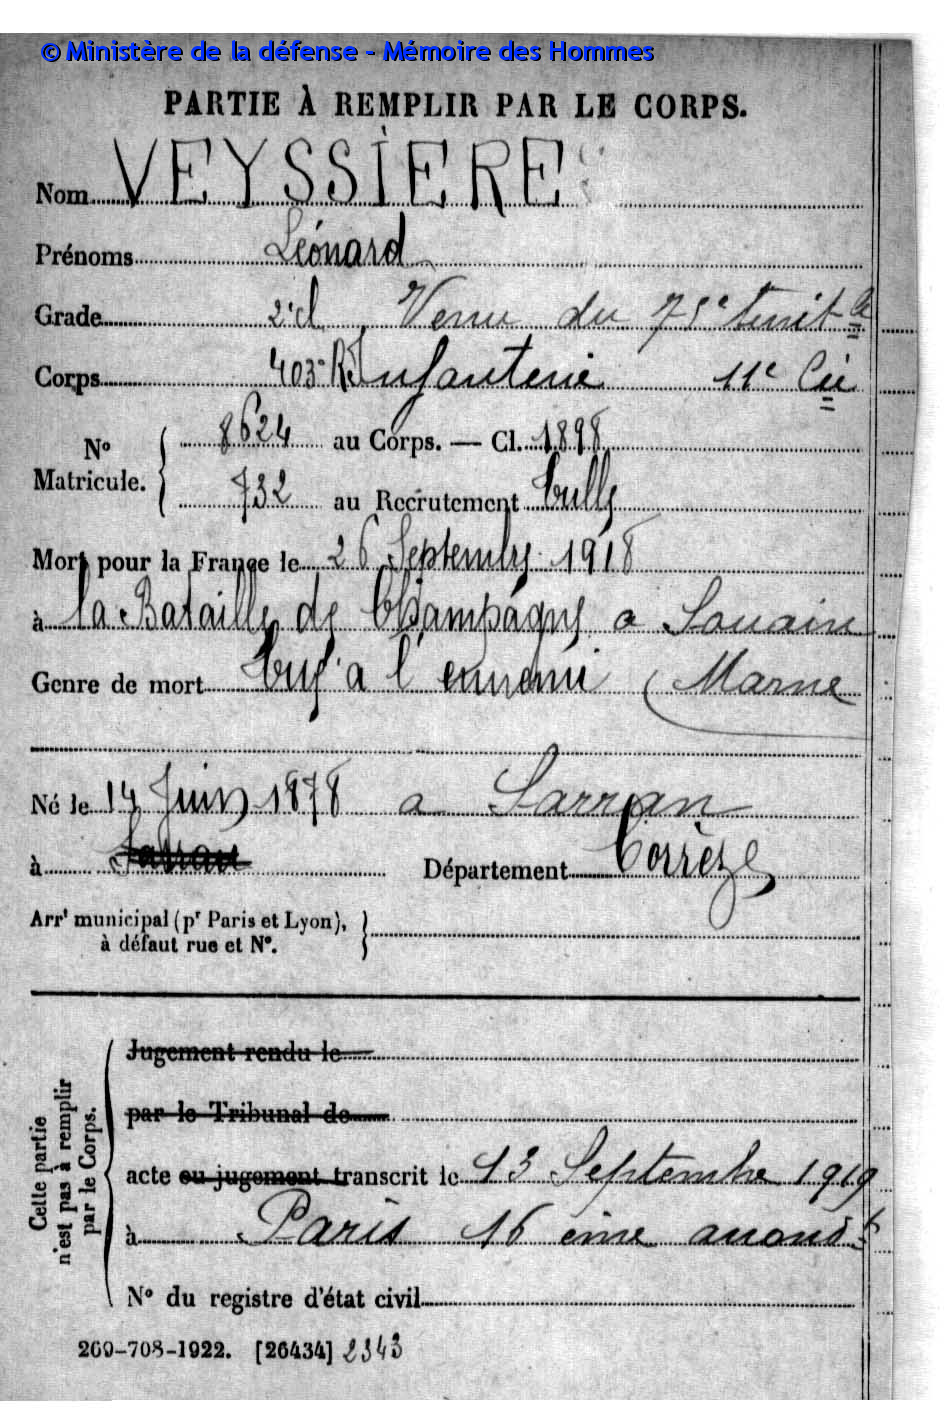 © Ministère de la défense - Mémoire des Hommes
PARTIE À REMPLIR PAR LE CORPS.
Nom VEYSSIÈRE
Prénoms Léonard
Grade 2e cl Venu du 75e territ al
Corps 403e R. Infanterie 11e Cie
No Matricule. 8624 au Corps. — Cl. 1898
732 au Recrutement Tulle
Mort pour la France le 26 Septembre 1918
à la Bataille de Champagne a Souain
Genre de mort Tué à l'ennemi (Marne
Né le 14 Juin 1878 a Sarran
à Sarran Département Corrèze
Arrt municipal (pr Paris et Lyon),
à défaut rue et No.
Cette partie
n'est pas à remplir
par le Corps.
Jugement rendu le
par le Tribunal de
acte ou jugement transcrit le 13 Septembre 1919
à Paris 16 ème arrondt
No du registre d'état civil
269-708-1922. [26434] 2343